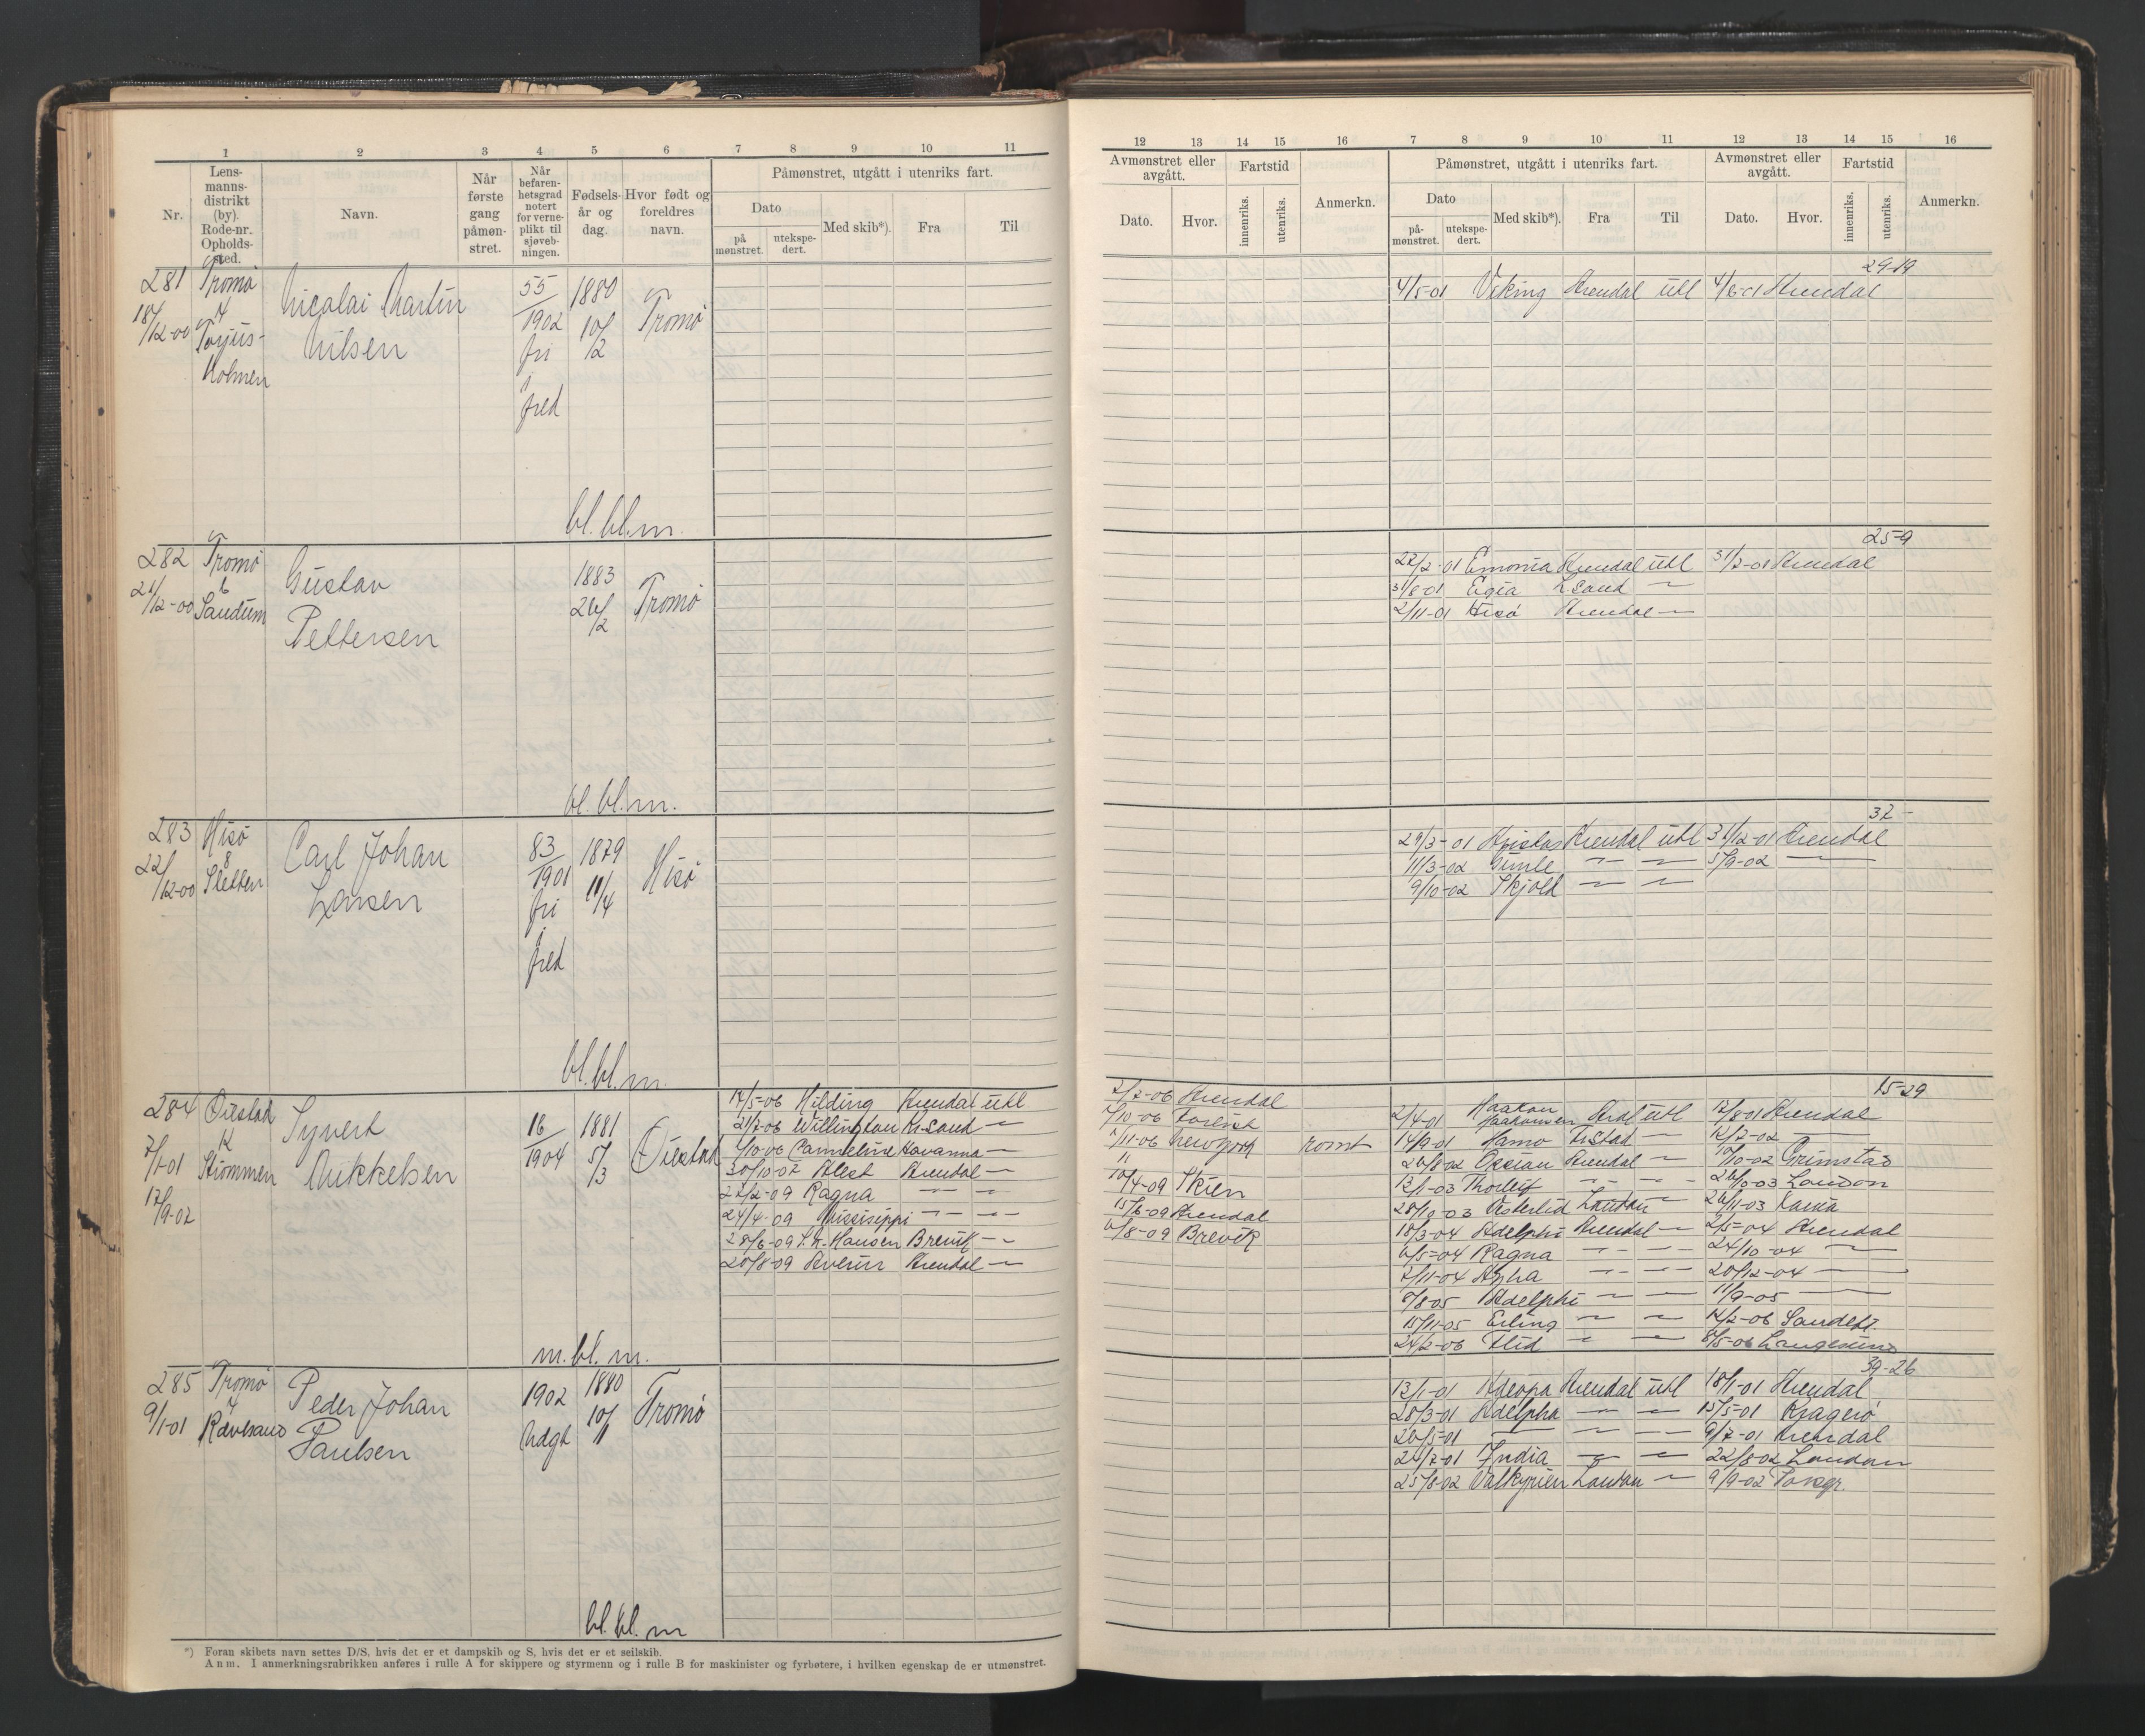 1 2 3 4 5 6 7 8 9 10 11
Nr.
Lens-
manns-
distrikt
(by).
Rode-nr.
Opholds-
sted.
Navn.
Når
første
gang
påmøn-
stret.
Når
befaren-
hetsgrad
notert
for verne-
plikt til
sjøveb-
ningen.
Fødsels-
år og
dag.
Hvor født og
foreldres
navn.
Påmønstret, utgått i utenriks fart.
Dato
på
mønstret.
utekspe-
dert.
Med skib*).
Fra
Til
281 Tromø
18/12-00 4
Torjus-
holmen
Nicolai Martin
Nilsen
55/1902
fri
i
fred
1880
10/2
Tromø
bl. bl. m.
282 Tromø
21/12-00 6
Sandum
Gustav
Pettersen
1883
26/2
Tromø
bl. bl. m.
283 Hisø
22/12-00 8
Sletten
Carl Johan
Larsen
83/1901
fri
i
fred
1879
11/4
Hisø
bl. bl. m.
284 Øiestad
7/1-01 12
Strømmen
17/9-02
Syvert
Mikkelsen
16/1904
1881
5/3
Øiestad
m. bl. m.
17/5-06 Hilding Arendal utl
21/7-06 Willington Kr.sand —
/10-06 Carmeline Havanna —
30/10-07 Alert Arendal —
27/2-09 Ragna — —
24/4-09 Missisippi — —
28/6-09 Hansen Brevik —
20/8-09 Severin Arendal —
285 Tromø
9/1-01 4
Rævesand
Peder Johan
Paulsen
1902
Udgt
1880
10/1
Tromø
bl. bl. m
*) Foran skibets navn settes D/S, hvis det er et dampskib og S, hvis det er et seilskib.
Anm. I anmerkningsrubrikken anføres i rulle A for skippere og styrmenn og i rulle B for maskinister og fyrbøtere, i hvilken egenskap de er utmønstret.
12 13 14 15 16 7 8 9 10 11 12 13 14 15 16
Avmønstret eller
avgått.
Dato.
Hvor.
Fartstid
innenriks.
utenriks.
Anmerkn.
Påmønstret, utgått i utenriks fart.
Dato
på-
mønstret.
utekspe-
dert.
Med skib*).
Fra
Til
Avmønstret eller
avgått.
Dato.
Hvor.
Fartstid
innenriks.
utenriks.
Anmerkn.
29-19
4/5-01 Viking Arendal utl 4/6-01 Arendal
25-9
22/2-01 Arendal utl 31/7-01 Arendal
31/8-01 L.sand —
2/11-01 Hisø Arendal —
37-
29/3-01 Arendal utl 31/12-01 Arendal
11/3-02 Gimle — — 5/9-02 —
9/10-02 Skjold — —
2/7-06 Arendal
/10-06
/11-06 New York rømt
10/4-09 Skien
15/6-09 Arendal
6/8-09 Brevik
15-29
2/4-01 Haakon
Haakonsen Aral utl 17/8-01 Arendal
14/9-01 — 12/7-02 —
26/8-02 Ossian Arendal — /10-02 Grimstad
13/1-03 Thorleif — — 26/10-03 London
28/10-03 Vesterlid London — 26/11-03
18/3-04 Adelphi Arendal — 2/5-04 Arendal
6/5-04 Ragna — — 24/10-04 —
7/11-04 — — 20/12-04 —
8/8-05 Adelphi — — 11/9-05 —
15/11-05 Erling — — 12/2-06
24/2-06 — — 8/5-06 Langesund
39-26
13/1-01 Arendal utl 18/1-01 Arendal
28/3-01 Adelphia — — 15/5-01 Kragerø
20/5-01 — — — 9/7-01 Arendal
24/7-01 India — — 22/8-02 London
25/8-02 Valkyrien London — 9/9-02